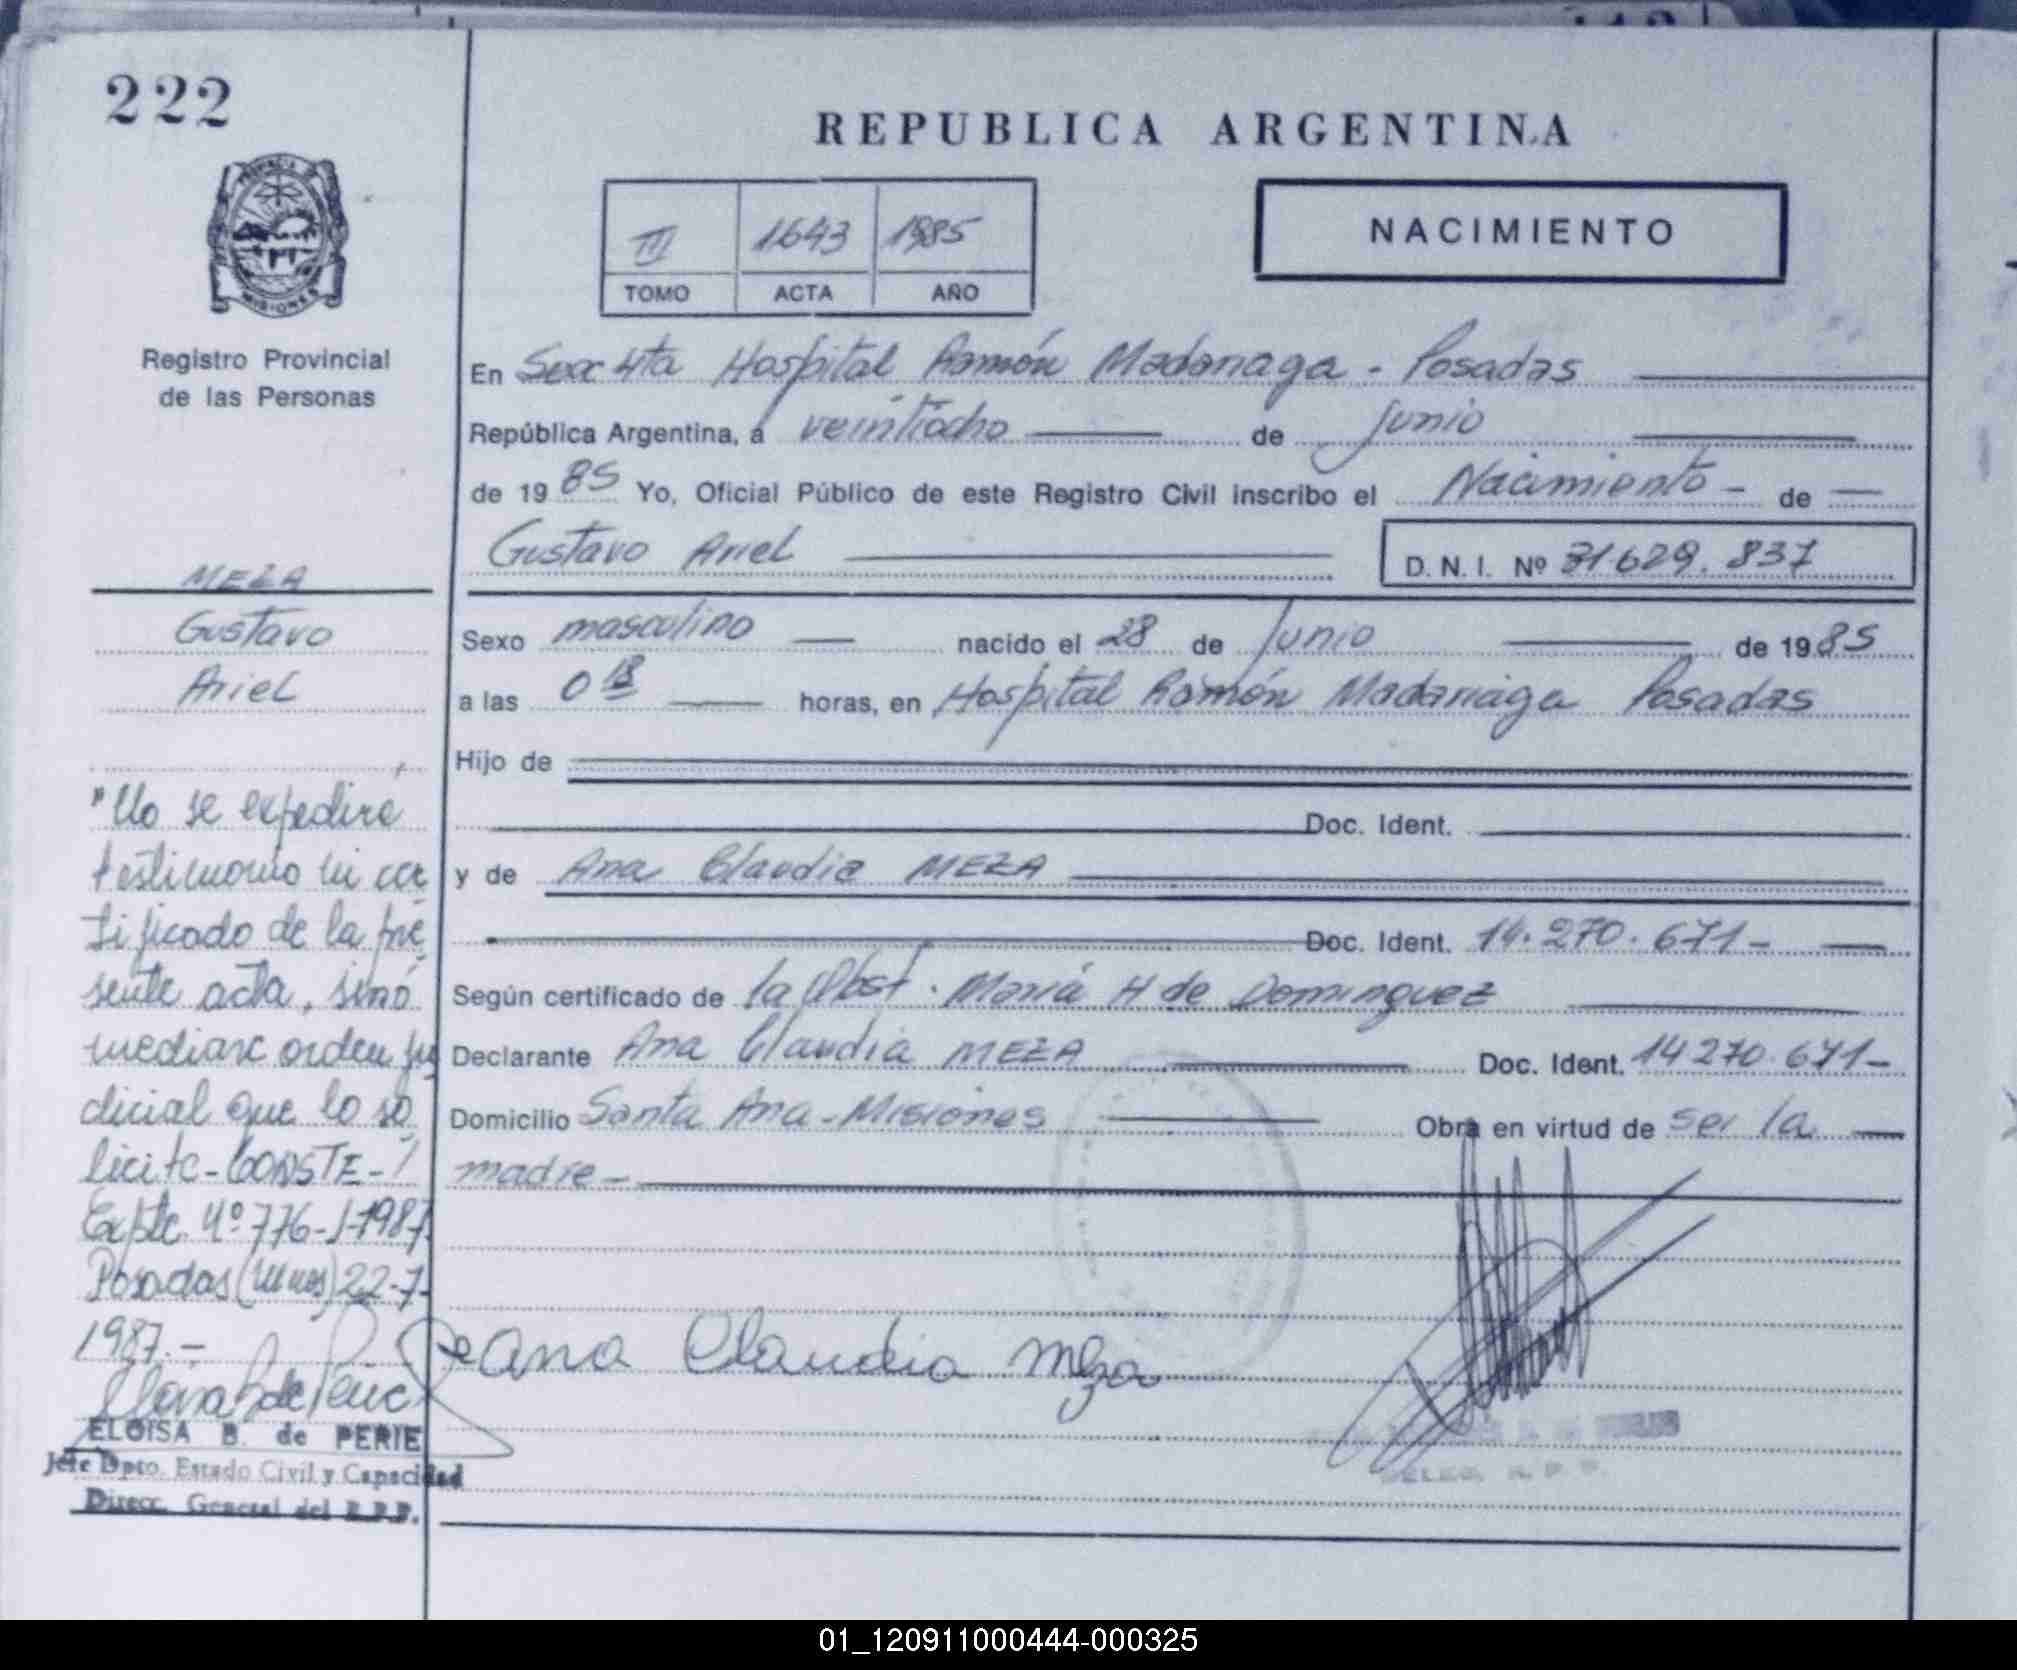 222
REPUBLICA ARGENTINA
PROVINCIA DE
MISIONES
Registro Provincial
de las Personas
III 1643 1985
TOMO ACTA AÑO
NACIMIENTO
En Secc 4ta Hospital Ramón Madariaga - Posadas
República Argentina, a veintiocho de junio
de 1985 Yo, Oficial Público de este Registro Civil inscribo el Nacimiento - de
Gustavo Ariel
D. N. I. Nº 31629.837
MEZA
Gustavo
Ariel
Sexo masculino nacido el 28 de Junio de 1985
a las 0 18 horas, en Hospital Ramón Madariaga Posadas
Hijo de
Doc. Ident.
y de Ana Claudia MEZA
Doc. Ident. 14.270.671-
Según certificado de la Obst. María H de Dominguez
Declarante Ana Claudia MEZA Doc. Ident. 14270.671-
Domicilio Santa Ana - Misiones Obra en virtud de ser la
madre -
"No se expedirá
testimonio ni cer
tificado de la pre
sente acta, sinó
mediare orden ju
dicial que lo so
licite - CONSTE -
Expte. Nº 776-J-1987.
Posadas (Mnes) 22-7-
1987.-
ELOISA B. de PERIE
Jefe Dpto. Estado Civil y Capacidad
Direcc. General del R.P.P.
Ana Claudia Meza
DELEG. R. P. P.
01_120911000444-000325